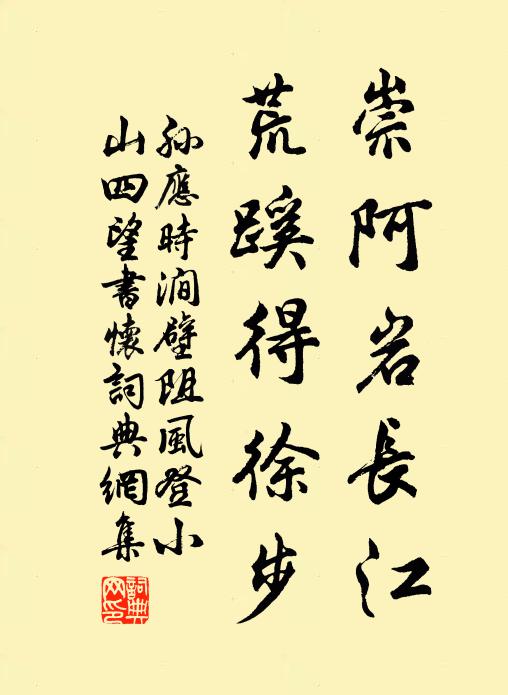 崇阿岩長江
荒蹊得徐步
孙應時澗壁阻風登小
山四望書懷詞典網集
詞典
网印